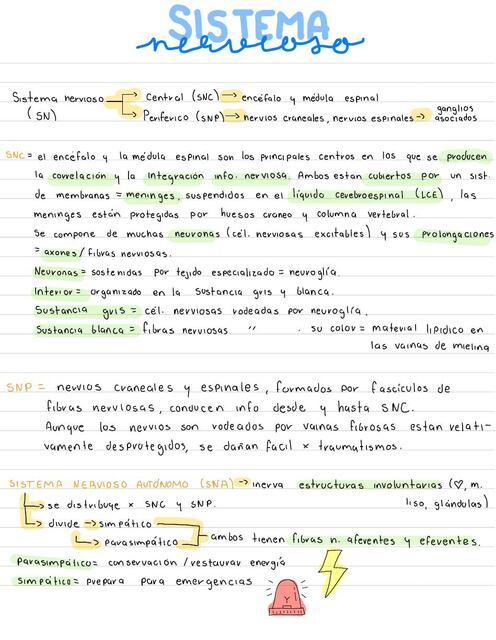 SISTEMA
nervioso
Sistema nervioso → Central (SNC) → encéfalo y médula espinal
(SN) → Periférico (SNP) → nervios craneales, nervios espinales → ganglios asociados
SNC = el encéfalo y la médula espinal son los principales centros en los que se producen
la correlación y la integración info. nerviosa. Ambos estan cubiertos por un sist.
de membranas = meninges, suspendidos en el líquido cerebroespinal (LCE), las
meninges están protegidas por huesos craneo y columna vertebral.
Se compone de muchas neuronas (cél. nerviosas excitables) y sus prolongaciones
= axones / fibras nerviosas.
Neuronas = sostenidas por tejido especializado = neuroglía.
Interior = organizado en la sustancia gris y blanca.
Sustancia gris = cél. nerviosas rodeadas por neuroglía.
Sustancia blanca = fibras nerviosas " . su color = material lipídico en
las vainas de mielina
SNP = nervios craneales y espinales, formados por fascículos de
fibras nerviosas, conducen info desde y hasta SNC.
Aunque los nervios son rodeados por vainas fibrosas estan relati-
vamente desprotegidos, se dañan facil x traumatismos.
SISTEMA NERVIOSO AUTÓNOMO (SNA) → inerva estructuras involuntarias (♡, m.
liso, glándulas)
→ se distribuye x SNC y SNP.
→ divide → simpático
→ parasimpático
ambos tienen fibras n. aferentes y eferentes.
Parasimpático = conservación / restaurar energía
Simpático = prepara para emergencias